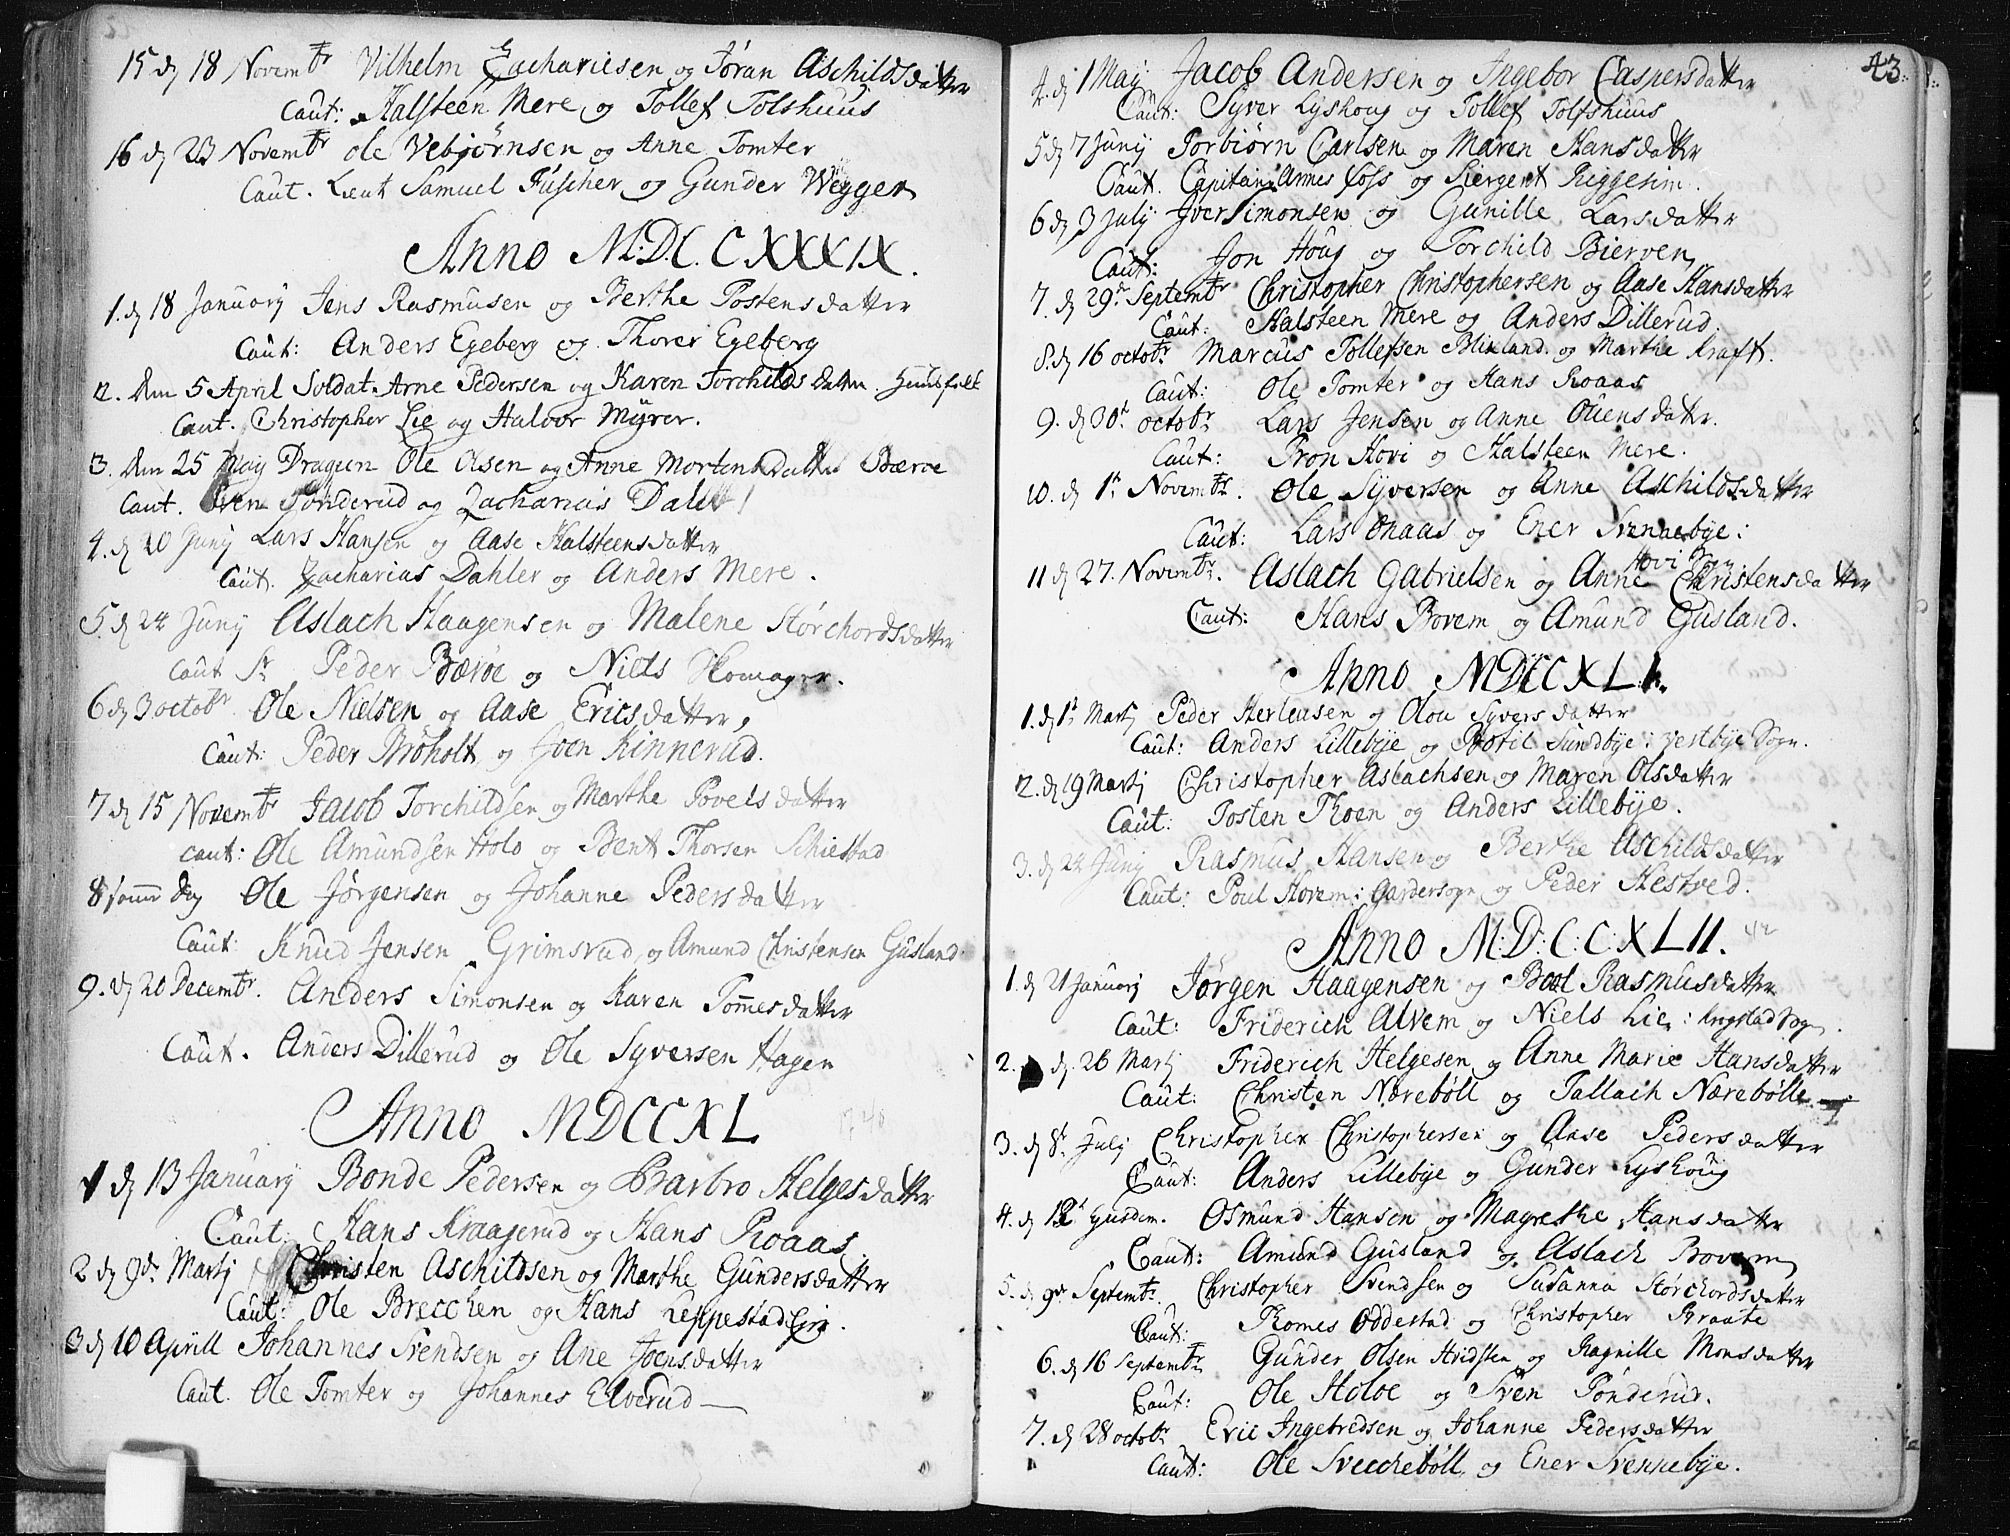 15 d 18 Novembr Vilhelm Zachariesen og Jöran Aschildsdatter
Caut: Halsteen Mere og Tollef Tolshuus
16 d 23 Novembr Ole Vebjörnsen og Anne Tomter
Caut. Lieut Samuel Füscher og Gunder Wegger
Anno M.D.C.C.XXXIX.
1. d 18 Januarij Jens Rasmusen og Berthe Postensdatter
Caut: Anders Egeberg og Thorer Egeberg
2. Den 5 April Soldat Arne Pedersen og Karen Torchilds datter.
Caut. Christopher Lie og Halvor Myrer.
3. Den 25 Maij Dragun Ole Olsen og Anne Mortens Datter Bærøe
Caut. Sven Tønderud og Zacharias Dahl
4. d 20 Junij Lars Hansen og Aase Halsteensdatter
Caut. Zacharias Dahler og Anders Mere.
5 d 24 Junij Aslach Haagensen og Malene Störchordsdatter
Caut Sr Peder Bæröe og Niels Homager.
6 d 3 octobr Ole Nielsen og Aase Ericsdatter,
Caut: Peder Bröholt og Joen Kinnerud.
7 d 15 Novembr Jacob Torchildsen og Marthe Povelsdatter
Caut: Ole Amundsen Holo og Bent Thorsen Schiestad
8 samme Dag Ole Jörgensen og Johanne Pedersdatter
Caut: Knud Jensen Grimsrud, og Amund Christensen Gusland
9. d 20 Decembr. Anders Simonsen og Karen Tommesdatter
Caut. Anders Dillerud og Ole Syversen Hagen
Anno MDCCXL 1740
1 d 13 Januarij Bonde Pedersen og Barbro Helgesdatter
Caut. Hans Kraagerud og Hans Roaas
2 d 9de Martj Christen Aschildsen og Marthe Gundersdatter
Caut: Ole Brecchen og Hans Leppestad
3 d 10 Aprill Johannes Svendsen og Ane Joensdatter
Caut. Ole Tomter og Johannes Elverud
43.
4. d 1 Maij Jacob Andersen og Ingebor Caspersdatter
Caut: Syver Lyshoug og Tollef Tolfshuus
5 d 7 Junij Torbiörn Carlsen og Maren Hansdatter
Caut. Capitain Annes Coss og Siergent Riggesim.
6 d 3 Julij Iver Simonsen og Gunille Larsdatter
Caut: Jon Houg og Torchild Bierven
7. d 29de Septembr Christopher Christophersen og Aase Hansdatter
Caut: Halsteen Mere og Anders Dillerud.
8. d 16 octobr Marcus Tollefsen Blixland. og Marthe Kraft.
Caut: Ole Tomter og Hans Roaas
9. d 30t octobr Lars Jensen og Anne Ollensdattr.
Caut: Tron Hovi og Halsteen Mere.
10. d 1t Novembr. Ole Syversen og Anne Aschildsdatter
Caut: Lars Onaas og Ener Svennebye:
Hovi
11 d 27. Novembr. Aslach Gabrielsen og Anne Christensdatter
Caut: Hans Bovem og Amund Gusland.
Anno MDCCXLI.
1. d 1t Martj Peder Herlausen og Olou Syversdatter
Caut: Anders Lillebye og Botil Sundbye: Vestbye Sogn.
2. d 19 Martj Christopher Aslachsen og Maren Olsdatter
Caut: Tosten Thoen og Anders Lillebye.
3. d 24 Junij Rasmus Hansen og Berthe Aschildsdatter
Caut: Poul Hovem: Gardersogn og Peder Hestved.
Anno M:D:C:C:XLII. 42
1. d 21 Januarij Jörgen Haagensen og Boel Rasmusdatter
Caut: Friderich Alvem og Niels Lie: Kregstad Sogn.
2. d. 26 Martj Friderich Helgesen og Anne Marie Hansdatter
Caut: Christen Næreböll og Tallach Nærebölle
3. d 8t Julij Christopher Christophersen og Aase Pedersdatter
Caut: Anders Lillebye og Gunder Lyshoug
4. d 12t Osmund Hansen og Magrethe Hansdatter
Caut: Amund Gusland og Aslach Bovem
5. d 9de Septembr. Christopher Svendsen og Susanna Störchordsdatter
Caut: Thomes Oddestad og Christopher Braate
6. d 16 Septembr Gunder Olsen Hvidsten og Ragnille Monsdatter
Caut: Ole Holoe og Sven Tönderud.
7. d 28 octobr Eric Ingebredsen og Johanne Pedersdatter
Caut: Ole Svecheböll og Ener Svennebye.